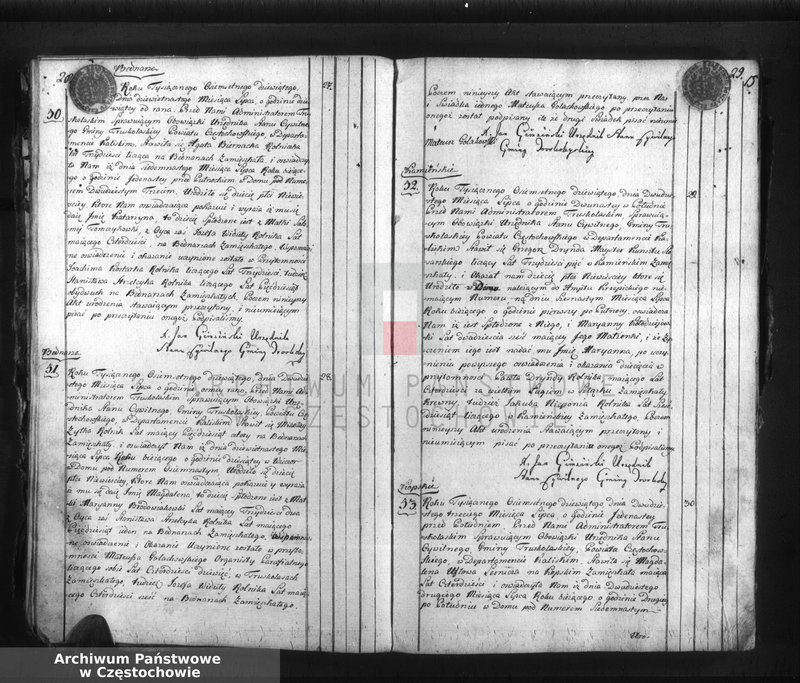 Bednarze
50.
27.
Roku Tysiącznego Osiemsetnego dziewiątego,
dnia dziewietnastego Miesiąca Lipca, o godzinie dzie
wiątey od rana. Przed Nami Administratorem Tru
skolaskim sprawującym Obowiązki Urzędnika Stanu Cywilne
go Gminy Truskolaskiey Powiatu Częstochowskiego w Departa
mencie Kaliskim. Stawiła się Agata Biernacka Rolniczka
lat Trzydzieści licząca na Bednarzach Zamieszkała, i oświadczy
ła Nam iż dnia siedemnastego Miesiąca Lipca Roku bieżące
go o godzinie Jedenastey przed Południem w Domu pod Nume
rem Dwudziestym Trzecim, Urodziło się dziecię płci Niewie
ściey, które Nam oświadczaiąca pokazuie i wyraża iż mu się
daie Imię Katarzyna, to dziecię spłodzone iest z Matki
Tomczykowski z Oyca zaś Jozefa Rolnika Lat
maiącego Czterdzieści na Bednarzach Zamieszkałego.
ne oświadczenie i okazanie uczynione zostało w Przytomności
Joachima Kostarka Rolnika liczącego Lat Trzydzieści, tudzież
Stanisława Rolnika liczącego Lat Pięćdziesiąt
obydwuch na Bednarzach Zamieszkałych. Poczem niniejszy
Akt urodzenia stawaiącym przeczytany, i nieumieiącym
pisać po przeczytaniu onegoż Podpisaliśmy.
X. Jan Gimziński Urzędnik
Stanu Cywilnego Gminy
Bednarze
51.
28.
Roku Tysiącznego Osiemsetnego dziewiątego, dnia Dwudzie
stego Miesiąca Lipca o godzinie osmey rano, przed Nami Ad
ministratorem Truskolaskim sprawującym Obowiązki Urzę
dnika Stanu Cywilnego Gminy Truskolaskiey, Powiatu Czę
stochowskiego, w Departamencie Kaliskim Stawił się Mikołay
Zyłka Rolnik Lat maiący Pięćdziesiąt cztery na Bednarzach
Zamieszkały, i oświadczył Nam iż dnia dziewietnastego Mie
siąca Lipca Roku bieżącego o godzinie dziewiątey w Wieczor
w Domu pod Numerem Osiemnastym Urodziło się dziecię
płci Niewieściey, które Nam oświadczaiąca pokazuie y wyraża
iż mu się daie Imię Magdalena, to dziecię spłodzone iest z Mat
ki Maryanny Lat maiącey Trzydzieści dwa
z Oyca zaś Stanisława Rolnika Lat maiącego
Pięćdziesiąt ieden na Bednarzach Zamieszkałego,
ne oświadczenie i Okazanie Uczynione zostało w przyto
mności Mateusza Gołachowskiego Organisty Parafialnego
liczącego sobie Lat Czterdzieści dziewięć, w Truskolasach
Zamieszkałego, tudzież Jozefa Rolnika Lat maią
cego Czterdzieści sześć na Bednarzach Zamieszkałego.
29.
Poczem niniejszy Akt stawaiącym przeczytany, przez Nas
i Swiadka iednego Mateusza Gołachowskiego po przeczytaniu
onegoż został podpisany iże że drugi Swiadek pisać nieumie
X. Jan Gimziński Urzędnik Stanu Cywilnego
Mateusz Gołachowski
Gminy
Kamińskie
52.
29
Roku Tysiącznego Osiemsetnego dziewiątego, dnia Dwudzie
stego Miesiąca Lipca o godzinie Dwunastey w Południe
Przed Nami Administratorem Truskolaskim, sprawują
cym Obowiązki Urzędnika Stanu Cywilnego, Gminy Tru
skolaskiey Powiatu Częstochowskiego w Departamencie Ka
liskim. Stawił się Grzegorz Drynda Mayster Kunsztu
liczący Lat Trzydzieści pięć w Kamińskim Zamie
szkały, i Okazał nam dziecię płci Niewieściey które się
Urodziło w Domu należącym do Amptu Krzepickiego nie
maiącym Numeru na dniu Szesnastym Miesiąca Lipca
Roku bieżącego o godzinie pierwszy po Połnocy, oświadcza
Nam iż iest Spłodzone z Niego, i Maryanny
Lat Dwadzieścia sześć maiącey Jego Małżonki, i że Ży
czeniem iego iest nadać mu Imię Maryanna, po uczy
nieniu powyższego oświadczenia i okazania dziecięcia w
przytomności Pawła Dryndy Rolnika maiącego Lat
Czterdzieści za wielkim Ługiem w Szląsku Zamieszkały
krewny, tudzież Jakuba Rolnika Lat Sześć
dziesiąt liczącego w Kamińskiey Zamieszkałego, Poczem
niniejszy Akt urodzenia stawaiącym przeczytany, i
nieumieiącym pisać po przeczytaniu onegoż Podpisaliśmy
X. Jan Gimziński Urzędnik
Stanu Cywilnego Gminy
53.
30
Roku Tysiącznego Osiemsetnego dziewiątego dnia Dwudzie
stego trzeciego Miesiąca Lipca o godzinie Jedenastey
przed Południem, Przed Nami Administratorem Tru
skolaskim sprawującym Obowiązki Urzędnika Stanu
Cywilnego, Gminy Truskolaskiey, Powiatu Częstochow
skiego, w Departamencie Kaliskim. Stawiła się Magda
lena na Zamieszkała maiąca
Lat Czterdzieści i oświadczyła Nam iż dnia Dwudziestego
drugiego Miesiąca Lipca Roku bieżącego, o godzinie Drugiey
po Południu w Domu pod Numerem Siedemnastym
Uro-
Archiwum Państwowe
w Częstochowie